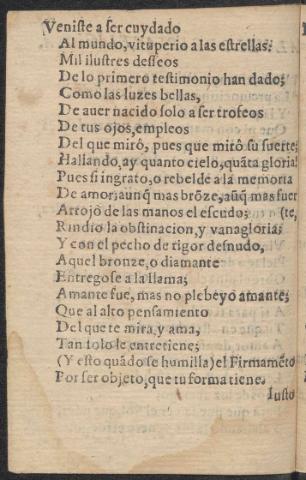 Veniste a ser cuydado
Al mundo, vituperio a las estrellas:
Mil ilustres desseos
De lo primero testimonio han dado;
Como las luzes bellas,
De auer nacido solo a ser trofeos
De tus ojos, empleos
Del que mirô, pues que mirô su suerte;
Hallando, ay quanto cielo, quãta gloria!
Pues si ingrato, o rebelde a la memoria
De amor; aunq̃ mas brõze, aũq̃ mas fuer
Arrojò de las manos el escudo; (te,
Rindio la obstinacion, y vanagloria;
Y con el pecho de rigor desnudo,
Aquel bronze, o diamante
Entregose a la llama;
Amante fue, mas no plebeyo amante;
Que al alto pensamiento
Del que te mira, y ama,
Tan solo le entretiene;
(Y esto quãdo se humilla) el Firmamẽto
Por ser objeto, que tu forma tiene.
Iusto